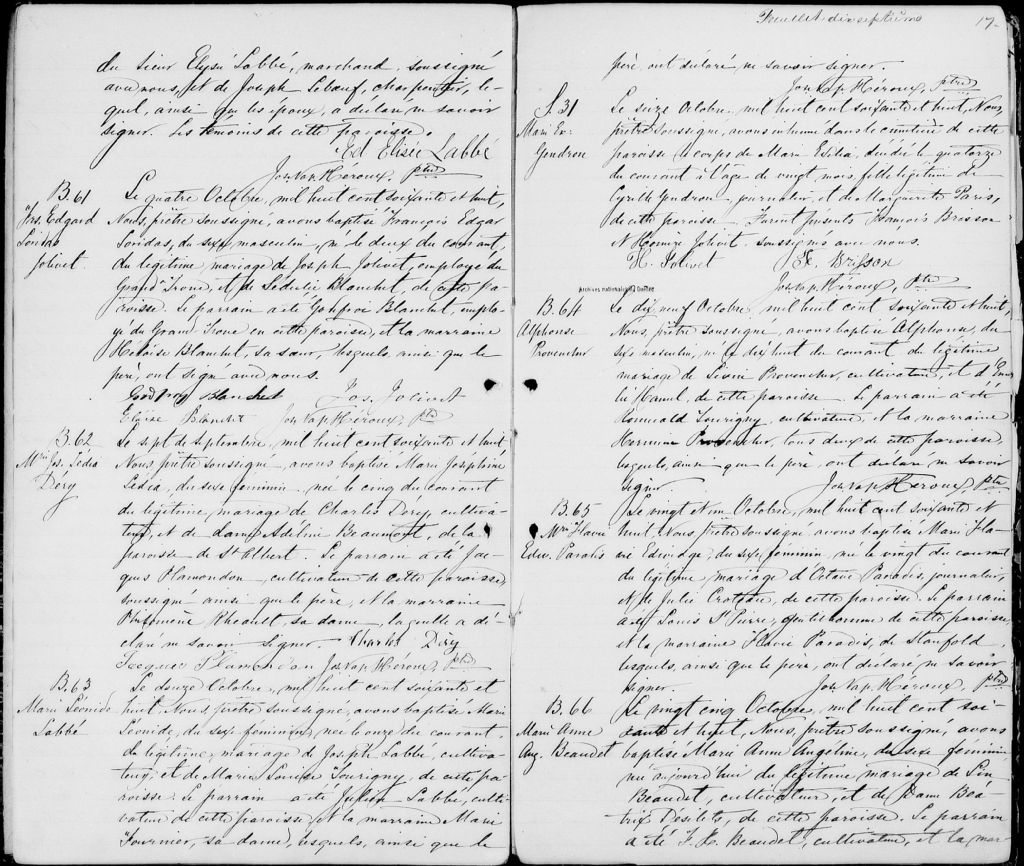 du sieur Elysé Labbé, marchand, soussigné
avec nous, et de Joseph Lebœuf, charpentier, le-
quel, ainsi que les époux, a déclaré ne savoir
signer. Les témoins de cette paroisse.
Ed Elisée Labbé
Jos. Nap. Héroux, Ptre
B. 61
Frs. Edgard
Léonidas
Jolivet.
Le quatre Octobre, mil huit cent soixante et huit,
Nous, prêtre soussigné, avons baptisé François Edgar
Léonidas, du sexe masculin, né le deux du courant,
du légitime mariage de Joseph Jolivet, employé du
Grand Tronc, et de Sédulie Blanchet, de cette pa-
roisse. Le parrain a été Godfroi Blanchet, emplo-
yé du Grand Tronc en cette paroisse, et la marraine
Héloïse Blanchet, sa sœur, lesquels, ainsi que le
père, ont signé avec nous.
Godfroy Blanchet Jos. Jolivet
Eloïse Blanchet Jos Nap. Héroux, Ptre
B. 62
Mie Js. Lédia
Dery
Le sept de Septembre, mil huit cent soixante et huit
Nous prêtre soussigné, avons baptisé Marie Josephine
Lédia, du sexe féminin, née le cinq du courant
du légitime, mariage de Charles Dery, cultiva-
teur, et de dame Adéline Beaumont, de la
paroisse de St Albert. Le parrain a été Jac-
ques Hamondon cultivateur de cette paroisse
soussigné ainsi que le père, et la marraine
Philomène Theault, sa dame, laquelle a dé-
claré ne savoir signer. Charles Dery
Jos Nap. Héroux, Ptre
B. 63
Marie Léonide
Labbé
Le douze Octobre, mil huit cent soixante et
huit Nous prêtre soussigné, avons baptisé Marie
Léonide, du sexe féminin, née le onze du courant,
du légitime, mariage de Joseph Labbé, cultiva-
teur, et de Marie Louise Tourigny, de cette pa-
roisse. Le parrain a été Julien Labbé, culti-
vateur de cette paroisse, et la marraine Marie
Fournier, sa dame, lesquels, ainsi que le
Feuillet dix septième 17.
père, ont déclaré ne savoir signer.
Jos. Nap. Héroux, Ptre
S. 31
Marie Ex-
Gendron
Le seize Octobre, mil huit cent soixante et huit, Nous,
prêtre soussigné, avons inhumé dans le cimetière de cette
paroisse le corps de Marie Exilia, décédée le quatorze
du courant à l'âge de vingt mois, fille légitime de
Cyrille Gendron, journalier, et de Marguerite Paris,
de cette paroisse. Furent présents François Brisson
et Homère Jolivet, soussignés avec nous.
H. Jolivet F. Brisson
Jos Nap. Héroux, Ptre
Archives nationales du Québec
B. 64
Alphonse
Provencher
Le dix neuf Octobre, mil huit cent soixante et huit,
Nous, prêtre soussigné, avons baptisé Alphonse, du
sexe masculin, né le dix huit du courant du légitime
mariage de Sévère Provencher, cultivateur, et d'Emé-
lie Hamel, de cette paroisse. Le parrain a été
Romuald Tourigny, cultivateur, et la marraine
Hermine Provencher, tous deux de cette paroisse,
lesquels, ainsi que le père, ont déclaré ne savoir
signer. Jos Nap. Héroux, Ptre
B. 65
Mie Flavie
Edw. Paradis
Le vingt et un Octobre, mil huit cent soixante et
huit, Nous, prêtre soussigné, avons baptisé Marie Fla-
vie Edwidge, du sexe féminin, née le vingt du courant
du légitime, mariage d'Octave Paradis, journalier,
et de Julie Croteau, de cette paroisse. Le parrain
a été Louis St Pierre, gentilhomme de cette paroisse
et la marraine Flavie Paradis, de Stanfold,
lesquels, ainsi que le père, ont déclaré ne savoir
signer. Jos. Nap. Héroux, Ptre
B. 66
Marie Anne
Ang. Beaudet
Le vingt cinq Octobre, mil huit cent soi-
xante et huit, Nous, prêtre soussigné, avons
baptisé Marie Anne Angeline, du sexe féminin
née aujourd'hui du légitime mariage de
Beaudet, cultivateur, et de Dame Béa-
trix Désilets, de cette paroisse. Le parrain
a été F. X. Beaudet, cultivateur, et la mar